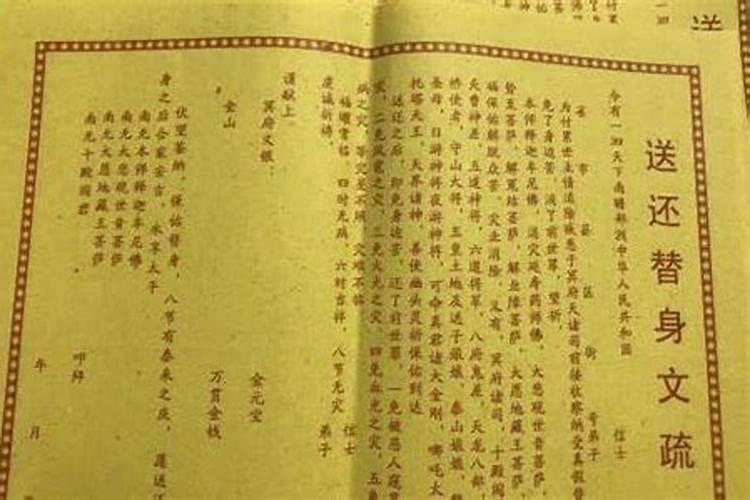 送还替身文疏
今有一四天下南赡部洲中华人民共和国
省 市 县 区 街 号弟子 信士
为付累世生债消除疾患于冥府天诸司前接收察纳受真假替
免了身边苦，消了前世罪，望祈
本师释迦牟尼佛，消灾延寿药师佛，大悲观世音菩萨
势至菩萨，解冤结菩萨，解业障菩萨，大愿地藏王菩萨，
福保佑解脱众苦，灾业消除，又有，冥府诸司，十殿阎
天曹神差，五道神将，六道将军，八府鬼差，天龙八部，
桥使者，守山大将，五皇土地及送子娘娘，泰山娘娘，
圣母，日游神将夜游神将，可命真君诸大金刚，哪吒太
托塔天王，天界诸神，善使幽头灵祈保佑到达
送还之后，即免身边苦，还了前世罪，一免被恶人
二免风雹之灾，三免火光之灾，四免血光之灾，五
病之灾，等灾差不顾，灾难不临
福顺常临 四时无病，六时吉祥，八节无灾 信士
虔诚祈祷， 弟子
谨献上
冥府文银： 金元宝
金山 万贯金钱
伏望鉴纳，保佑替身，八节有泰来之庆，
身之后合家安吉，永享太平
南无本师释迦牟尼佛
南无大悲观世音菩萨
南无大愿地藏王菩萨
南无十殿阎君
叩拜
年 月